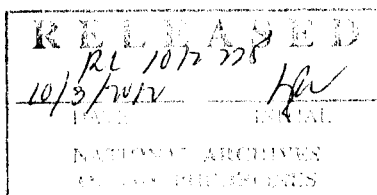 RELEASED
10/3/2012
DATE INITIAL
NATIONAL ARCHIVES
OF THE PHILIPPINES